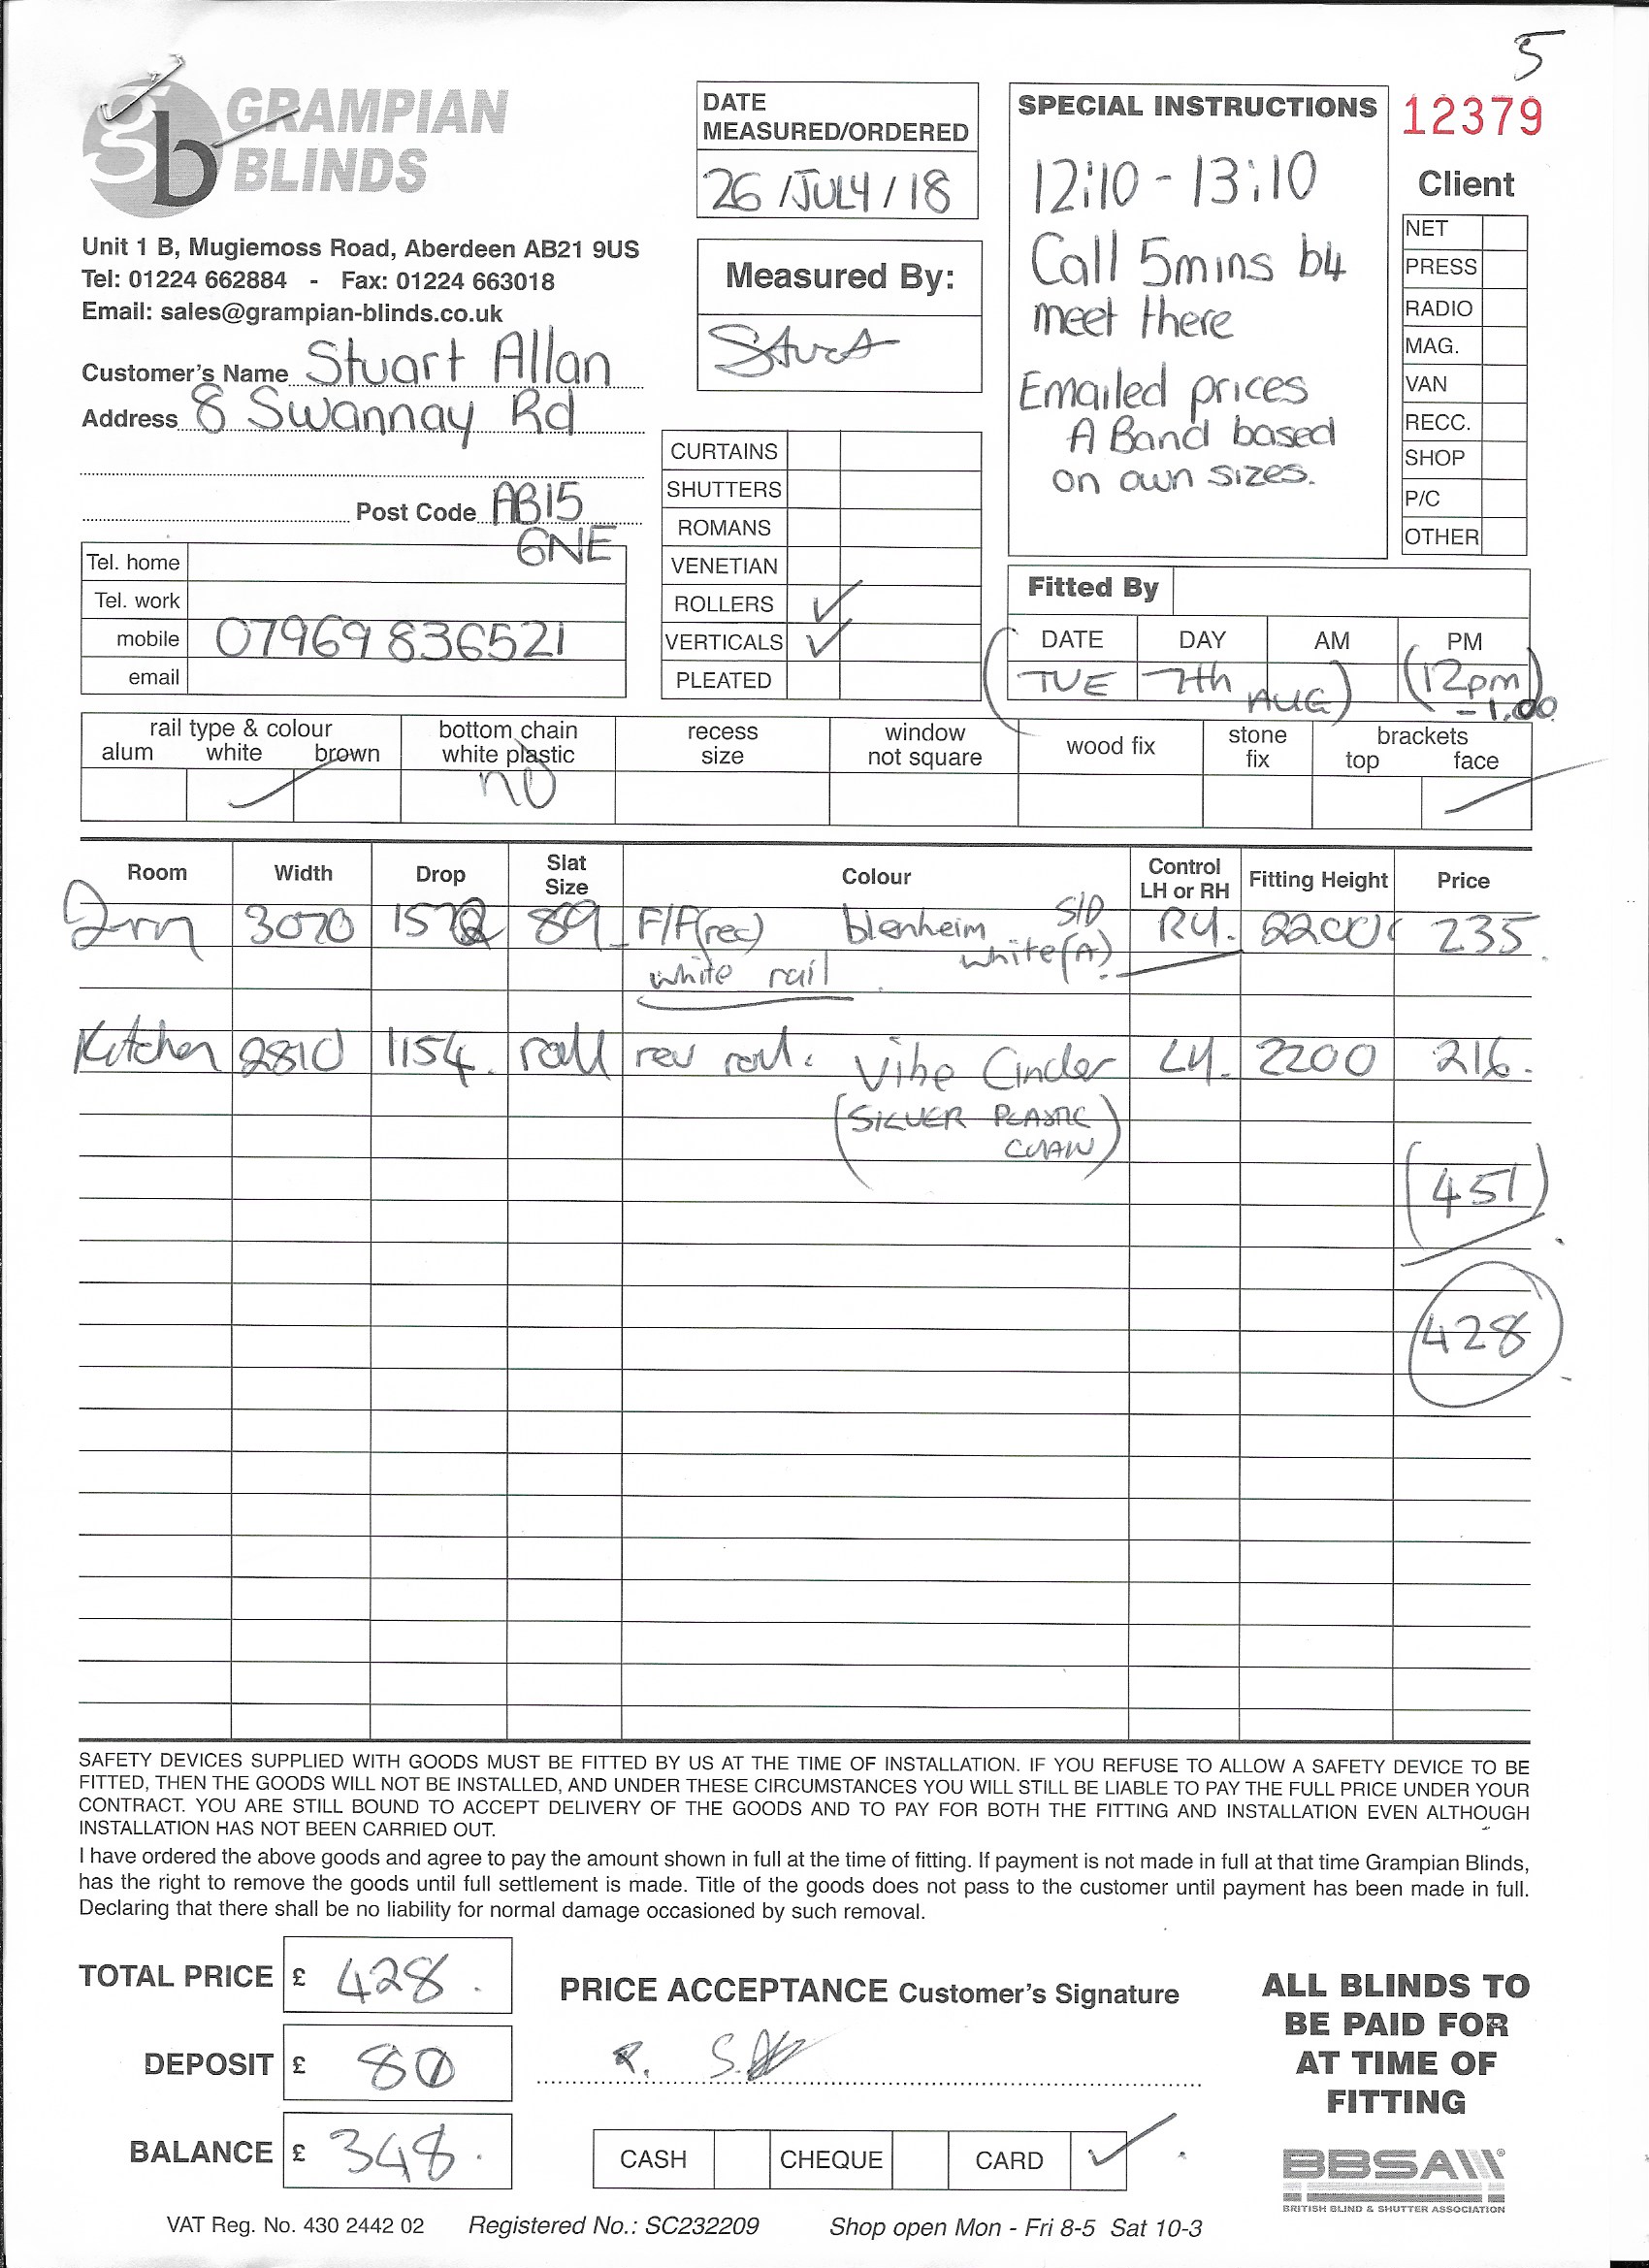 5
GRAMPIAN
BLINDS
Unit 1 B, Mugiemoss Road, Aberdeen AB21 9US
Tel: 01224 662884 - Fax: 01224 663018
Email: sales@grampian-blinds.co.uk
Customer's Name Stuart Allan
Address 8 Swannay Rd
Post Code AB15
6NE
Tel. home
Tel. work
mobile 07969 836521
email
DATE
MEASURED/ORDERED
26/JULY/18
Measured By:
Stuart
CURTAINS
SHUTTERS
ROMANS
VENETIAN
ROLLERS ✓
VERTICALS ✓
PLEATED
SPECIAL INSTRUCTIONS
12:10 - 13:10
Call 5mins b4
meet there
Emailed prices
A Band based
on own sizes.
12379
Client
NET
PRESS
RADIO
MAG.
VAN
RECC.
SHOP
P/C
OTHER
Fitted By
DATE DAY AM PM
(TUE 7th AUG) (12pm)
- 1.00
rail type & colour bottom chain recess window wood fix stone brackets
alum white brown white plastic size not square fix top face
no
Room Width Drop Slat Size Colour Control LH or RH Fitting Height Price
3070 89 F/F(rec) blenheim S/D RH. 2200 235.
white(A)
white rail
Kitchen 2810 1154. roll rev roll. Vibe Cinder LH. 2200 216.
(SILVER PLASTIC
CHAIN)
(451)
428
SAFETY DEVICES SUPPLIED WITH GOODS MUST BE FITTED BY US AT THE TIME OF INSTALLATION. IF YOU REFUSE TO ALLOW A SAFETY DEVICE TO BE
FITTED, THEN THE GOODS WILL NOT BE INSTALLED, AND UNDER THESE CIRCUMSTANCES YOU WILL STILL BE LIABLE TO PAY THE FULL PRICE UNDER YOUR
CONTRACT. YOU ARE STILL BOUND TO ACCEPT DELIVERY OF THE GOODS AND TO PAY FOR BOTH THE FITTING AND INSTALLATION EVEN ALTHOUGH
INSTALLATION HAS NOT BEEN CARRIED OUT.
I have ordered the above goods and agree to pay the amount shown in full at the time of fitting. If payment is not made in full at that time Grampian Blinds,
has the right to remove the goods until full settlement is made. Title of the goods does not pass to the customer until payment has been made in full.
Declaring that there shall be no liability for normal damage occasioned by such removal.
TOTAL PRICE £ 428.
DEPOSIT £ 80
BALANCE £ 348.
PRICE ACCEPTANCE Customer's Signature
CASH CHEQUE CARD ✓
ALL BLINDS TO
BE PAID FOR
AT TIME OF
FITTING
BBSA
BRITISH BLIND & SHUTTER ASSOCIATION
VAT Reg. No. 430 2442 02 Registered No.: SC232209 Shop open Mon - Fri 8-5 Sat 10-3